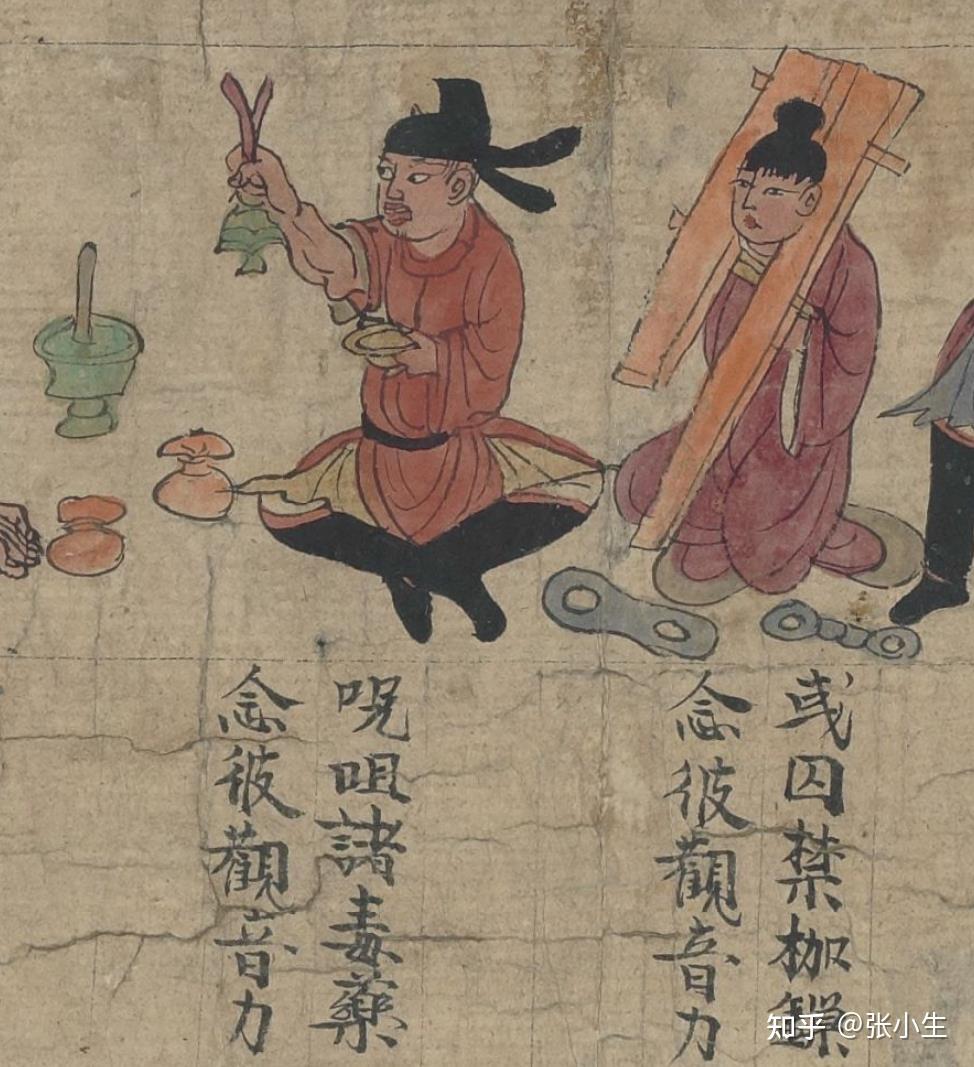 或囚禁枷鏁
念彼觀音力
呪咀諸毒藥
念彼觀音力
知乎 @张小生